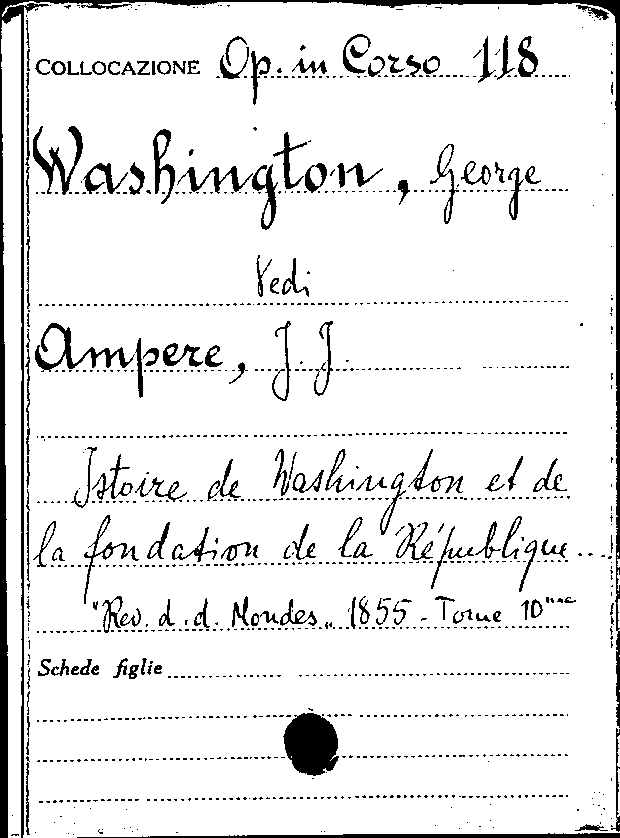 COLLOCAZIONE Op. in Corso 118
Washington, George
Vedi
Ampere, J. J.
Istoire de Washington et de
la fondation de la République...
"Rev. d. d. Mondes„ 1855 - Tome 10ème
Schede figlie